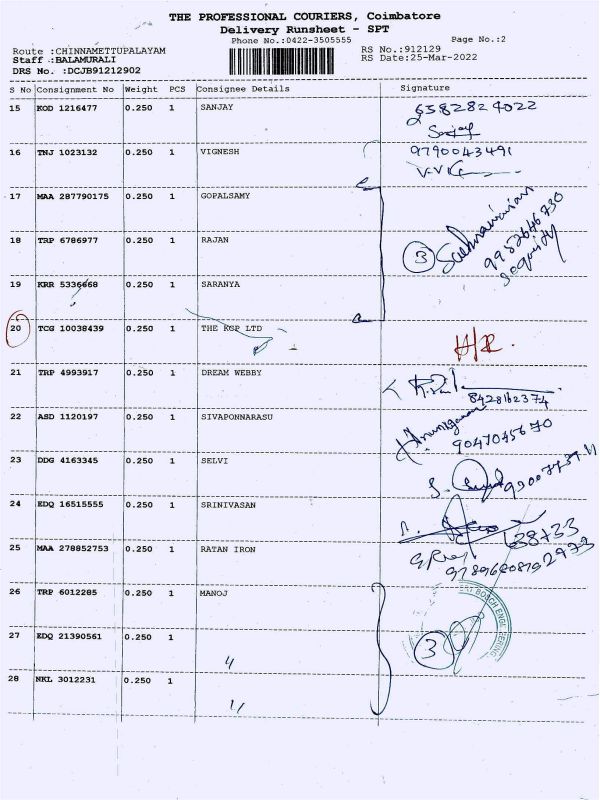 THE PROFESSIONAL COURIERS, Coimbatore
Delivery Runsheet - SPT
Phone No.:0422-3505555 Page No.:2
Route :CHINNAMETTUPALAYAM RS No.:912129
Staff :BALAMURALI RS Date:25-Mar-2022
DRS No. :DCJB91212902
S No Consignment No Weight PCS Consignee Details Signature
15 KOD 1216477 0.250 1 SANJAY 6582824022
Sanjay
16 TNJ 1023132 0.250 1 VIGNESH 9790043491
17 MAA 287790175 0.250 1 GOPALSAMY
18 TRP 6786977 0.250 1 RAJAN 3 9952646730
security
19 KRR 5336668 0.250 1 SARANYA
20 TCG 10038439 0.250 1 THE KCP LTD H/R.
21 TRP 4993917 0.250 1 DREAM WEBBY
8428162374
22 ASD 1120197 0.250 1 SIVAPONNARASU
9047045670
23 DDG 4163345 0.250 1 SELVI
24 EDQ 16515555 0.250 1 SRINIVASAN
25 MAA 278852753 0.250 1 RATAN IRON
26 TRP 6012285 0.250 1 MANOJ
27 EDQ 21390561 0.250 1 〃 3
28 NKL 3012231 0.250 1 〃